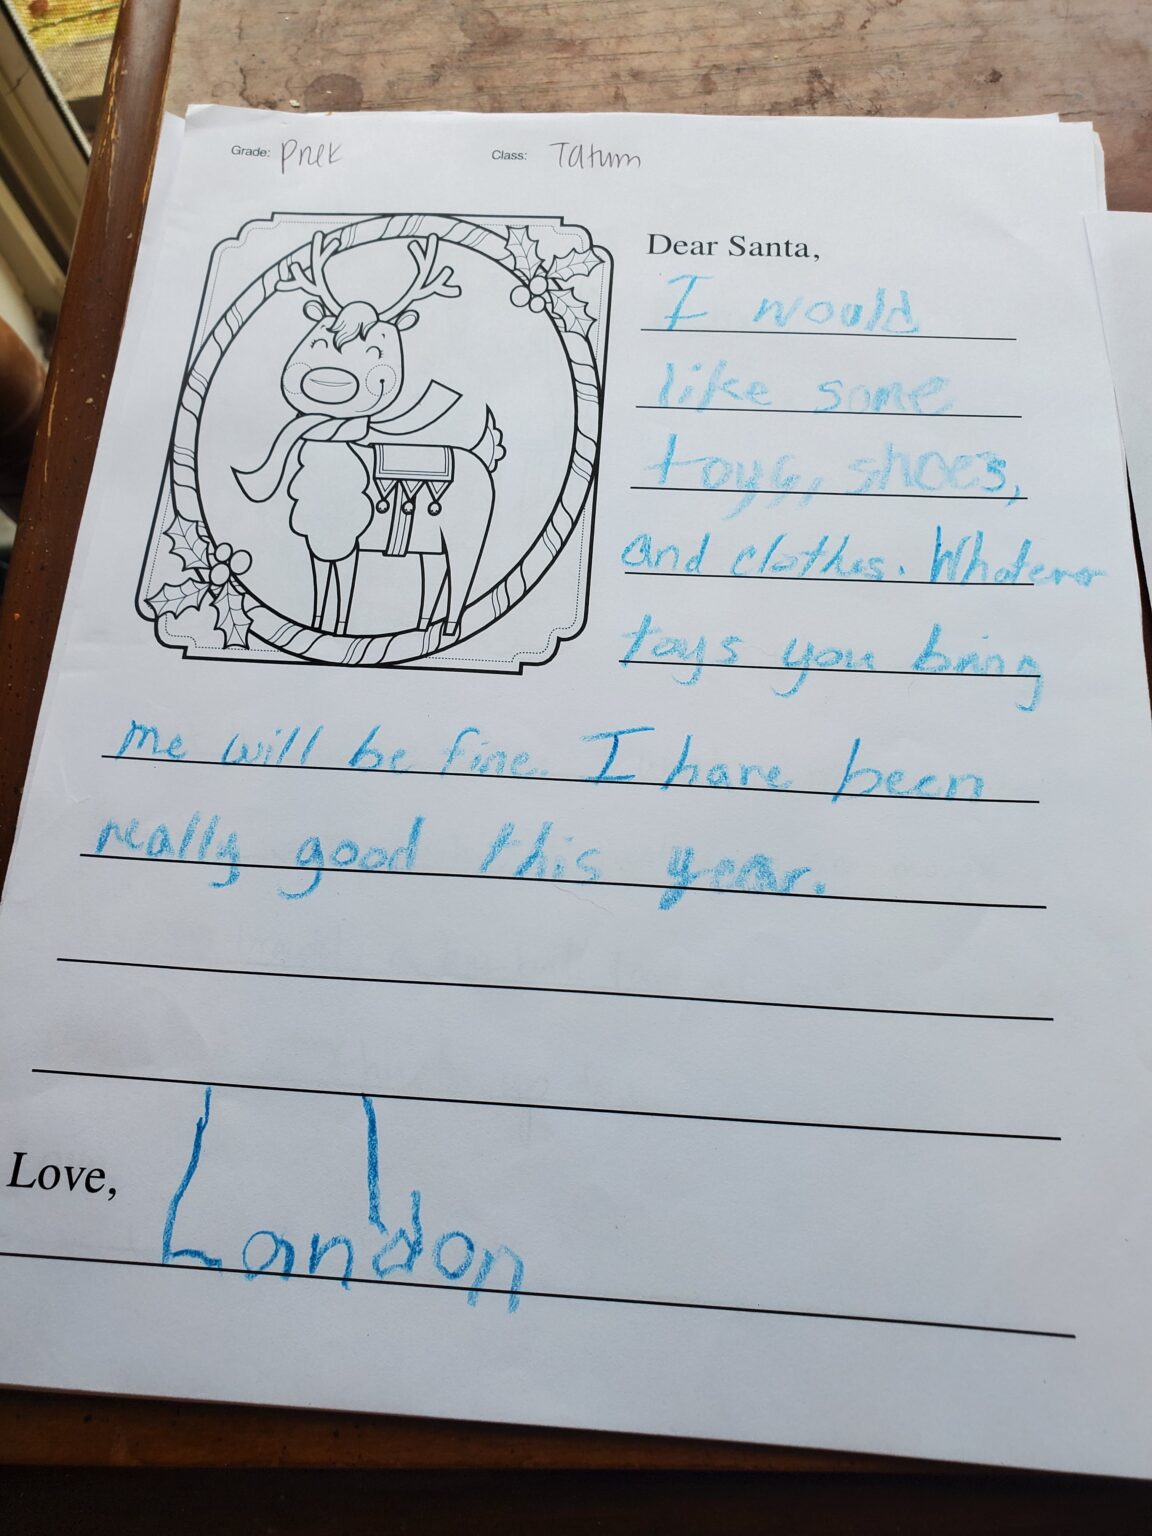 Grade: PreK Class: Tatum
Dear Santa,
I would
like some
toys, shoes,
and clothes. Whatever
toys you bring
me will be fine. I have been
really good this year.
Love, Landon